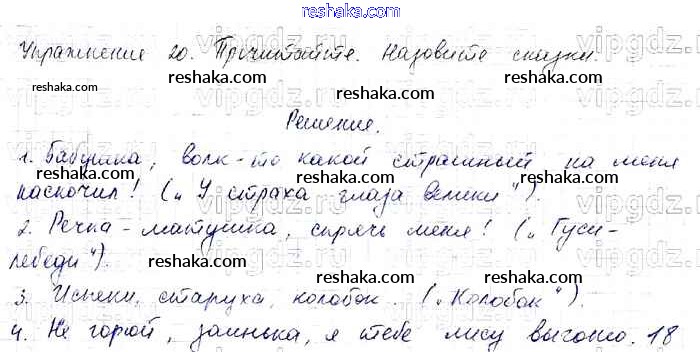 reshaka.com
Упражнение 20. Прочитайте. Назовите сказки.
reshaka.com reshaka.com reshaka.com
Решение.
1. Бабушка, волк-то какой страшный на меня
reshaka.com reshaka.com reshaka.com
наскочил! („У страха глаза велики").
2. Речка-матушка, спрячь меня! („Гуси-
лебеди").
reshaka.com reshaka.com reshaka.com
3. Испеки, старуха, колобок. („Колобок").
4. Не горюй, заинька, я тебе лису выгоню. 18
reshaka.com reshaka.com reshaka.com